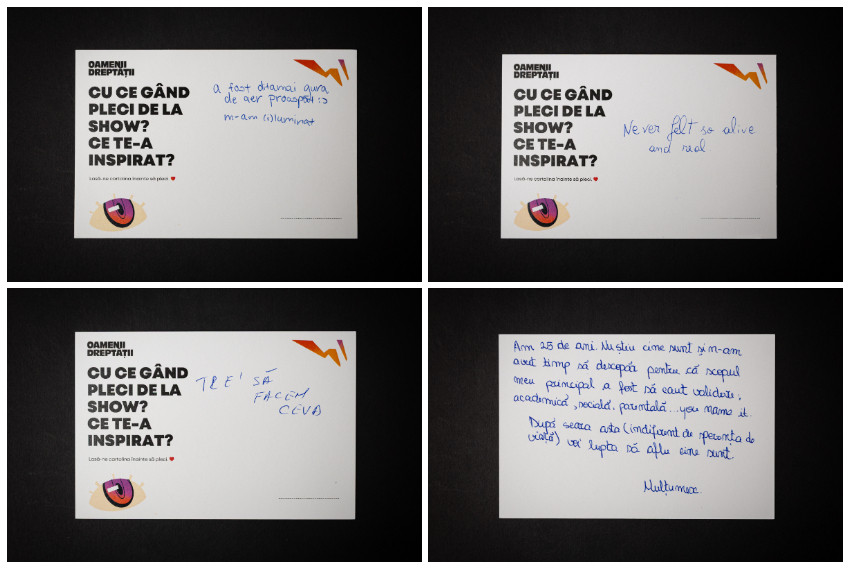 OAMENII
DREPTĂȚII
CU CE GÂND
PLECI DE LA
SHOW?
CE TE-A
INSPIRAT?
Lasă-ne cartolina înainte să pleci.
a fost ditamai gura
de aer proaspăt :>
m-am (i)luminat
OAMENII
DREPTĂȚII
CU CE GÂND
PLECI DE LA
SHOW?
CE TE-A
INSPIRAT?
Lasă-ne cartolina înainte să pleci.
Never felt so alive
and real
OAMENII
DREPTĂȚII
CU CE GÂND
PLECI DE LA
SHOW?
CE TE-A
INSPIRAT?
Lasă-ne cartolina înainte să pleci.
TRE' SĂ
FACEM
CEVA
Am 25 de ani. Nu știu cine sunt și n-am
avut timp să descopăr pentru că scopul
meu principal a fost să caut validare;
academică, socială, parentală...you name it.
După seara asta (indiferent de speranța de
viață) voi lupta să aflu cine sunt.
Mulțumesc.